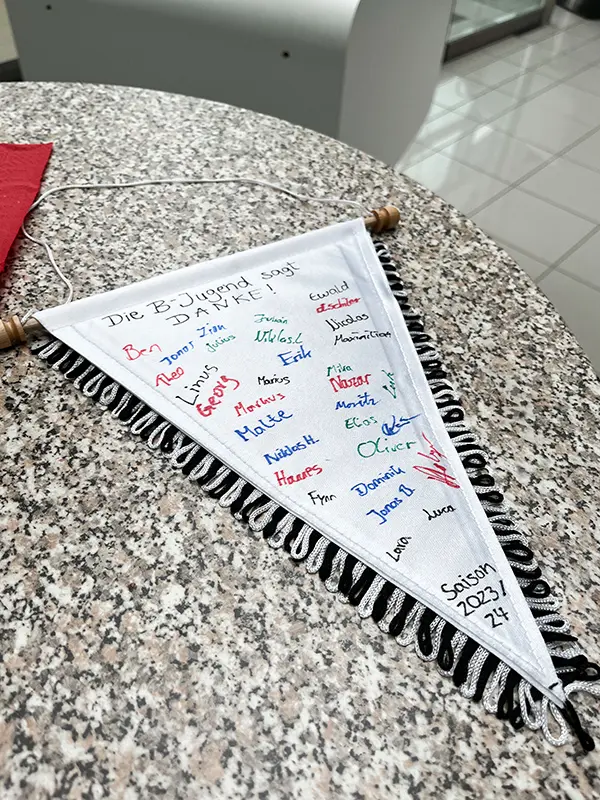 Die B-Jugend sagt
DANKE!
Ewald
Ben
Jonas
Julius
Niklas L
Nicolas
Maximilian
Theo
Linus
Erik
Georg
Marius
Mika
Nazar
Markus
Moritz
Malte
Elias
Niklas H.
Oliver
Hannes
Dominik
Fynn
Jonas B.
Luca
Lara
Saison
2023/
24